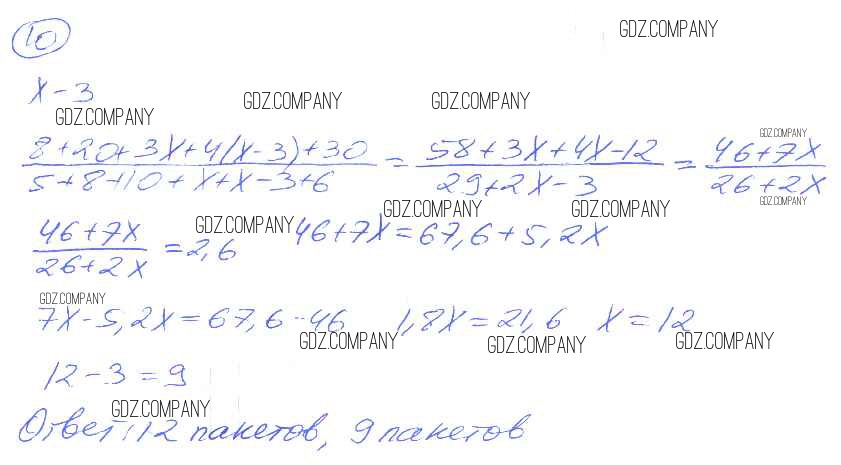 10
GDZ.COMPANY
x - 3
GDZ.COMPANY GDZ.COMPANY GDZ.COMPANY
(8+20+3x+4(x-3)+30)/(5+8+10+x+x-3+6) = (58+3x+4x-12)/(29+2x-3) = (46+7x)/(26+2x)
GDZ.COMPANY
GDZ.COMPANY
GDZ.COMPANY GDZ.COMPANY GDZ.COMPANY
(46+7x)/(26+2x) = 2,6 46+7x=67,6+5,2x
GDZ.COMPANY
7x-5,2x=67,6-46 1,8x=21,6 x=12
GDZ.COMPANY GDZ.COMPANY GDZ.COMPANY
12-3=9
GDZ.COMPANY
Ответ: 12 пакетов, 9 пакетов